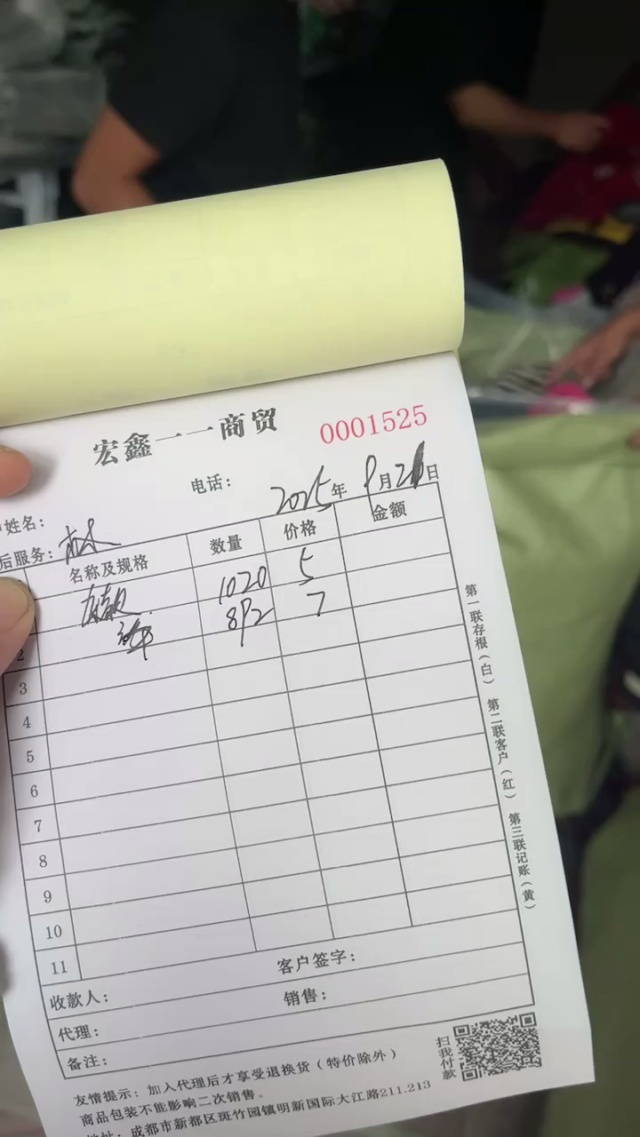 宏鑫一一商贸
0001525
姓名：
电话：
2025年9月21日
后服务：林
名称及规格 数量 价格 金额
1020 5
2 892 7
3
4
5
6
7
8
9
10
11
第一联存根（白） 第二联客户（红） 第三联记账（黄）
客户签字：
收款人： 销售：
代理：
备注：
扫我付款
友情提示：加入代理后才享受退换货（特价除外）
商品包装不能影响二次销售。
地址：成都市新都区斑竹园镇明新国际大江路211.213